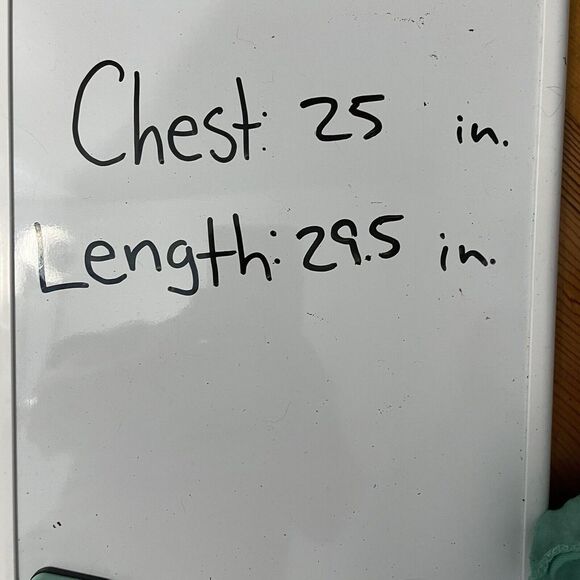 Chest: 25 in.
Length: 29.5 in.